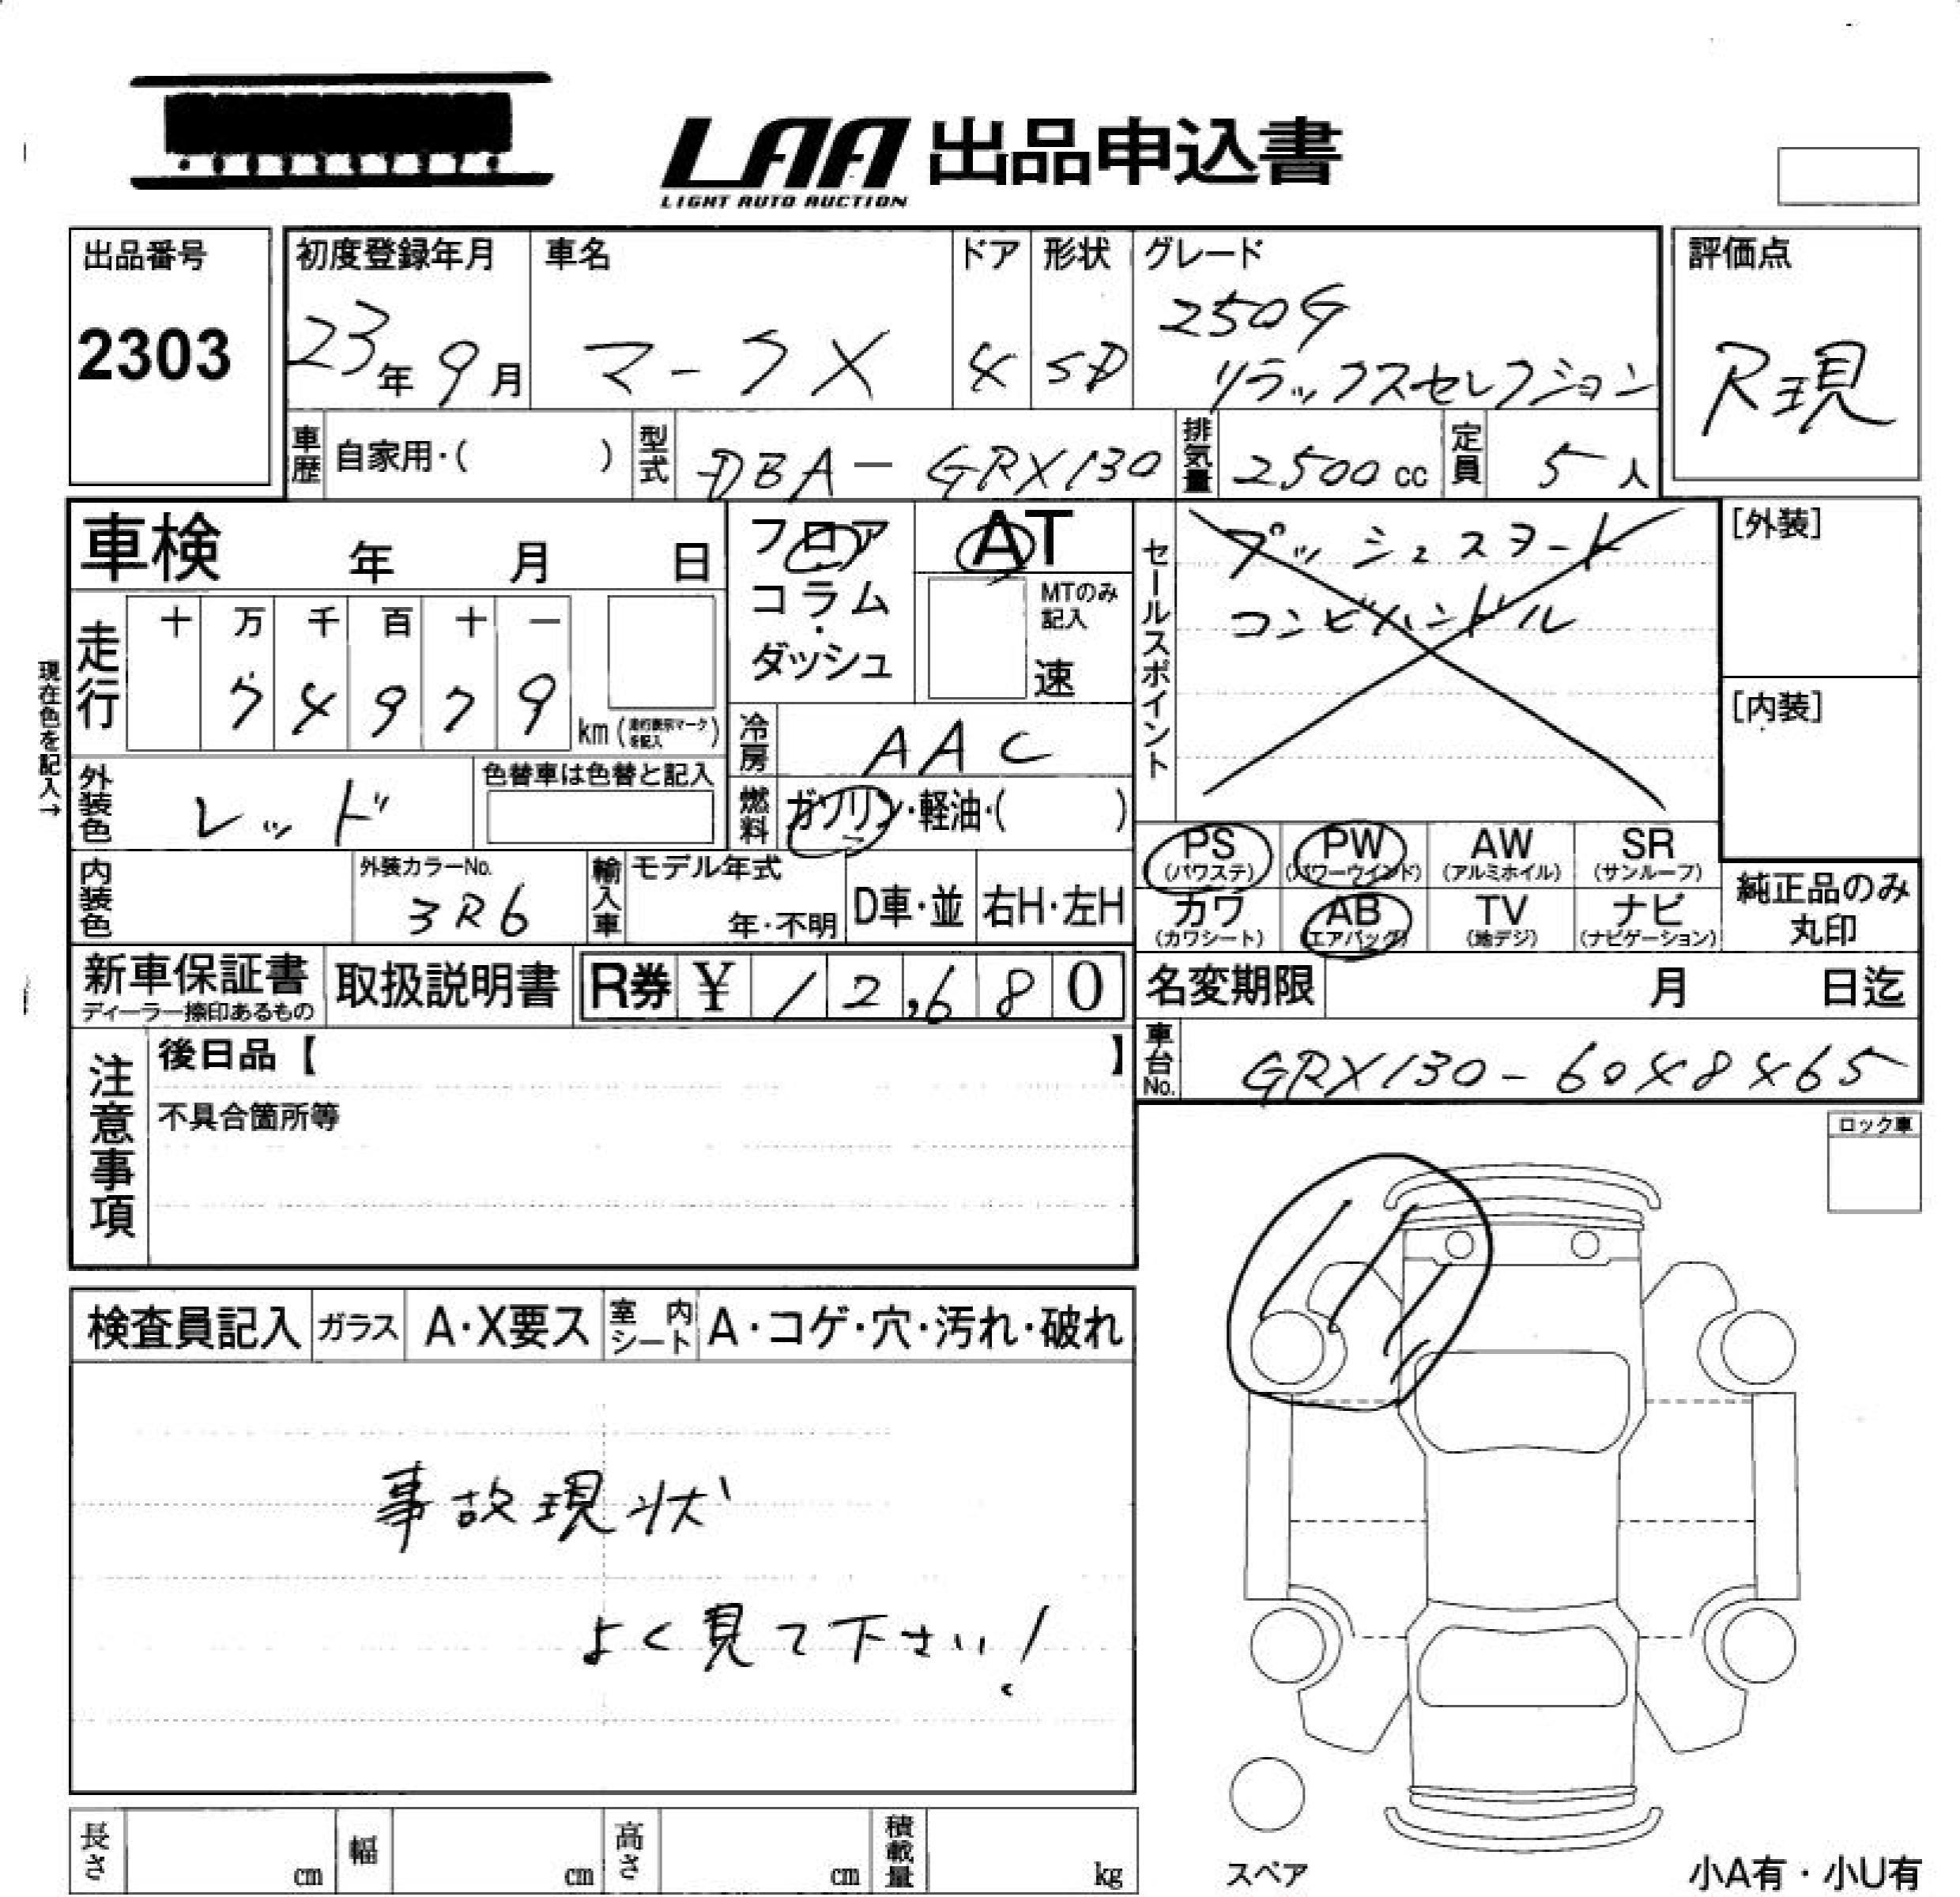 LAA 出品申込書
LIGHT AUTO AUCTION
出品番号
2303
初度登録年月
23年9月
車名
マークX
ドア
4
形状
SD
グレード
250G
リラックスセレクション
評価点
R現
車歴 自家用・( )
型式 DBA-GRX130
排気量 2500cc
定員 5人
車検 年 月 日
フロア
コラム
・
ダッシュ
AT
MTのみ
記入
速
セールスポイント
プッシュスタート
コンビハンドル
[外装]
[内装]
現在色を記入→
走行
十 万 千 百 十 一
7 4 9 7 9
km(走行表示マークを記入)
冷房 AAC
外装色 レッド
色替車は色替と記入
燃料 ガソリン・軽油・( )
PS
(パワステ)
PW
(パワーウインド)
AW
(アルミホイル)
SR
(サンルーフ)
カワ
(カワシート)
AB
(エアバッグ)
TV
(地デジ)
ナビ
(ナビゲーション)
純正品のみ
丸印
内装色
外装カラーNo.
3R6
輸入車
モデル年式
年・不明
D車・並
右H・左H
新車保証書
ディーラー捺印あるもの
取扱説明書
R券 ¥ 12,680
名変期限 月 日迄
車台No. GRX130-6048465
注意事項
後日品【 】
不具合箇所等
ロック車
検査員記入
ガラス A・X要ス
室内シート A・コゲ・穴・汚れ・破れ
事故現状
よく見て下さい!
長さ cm
幅 cm
高さ cm
積載量 kg
スペア
小A有・小U有